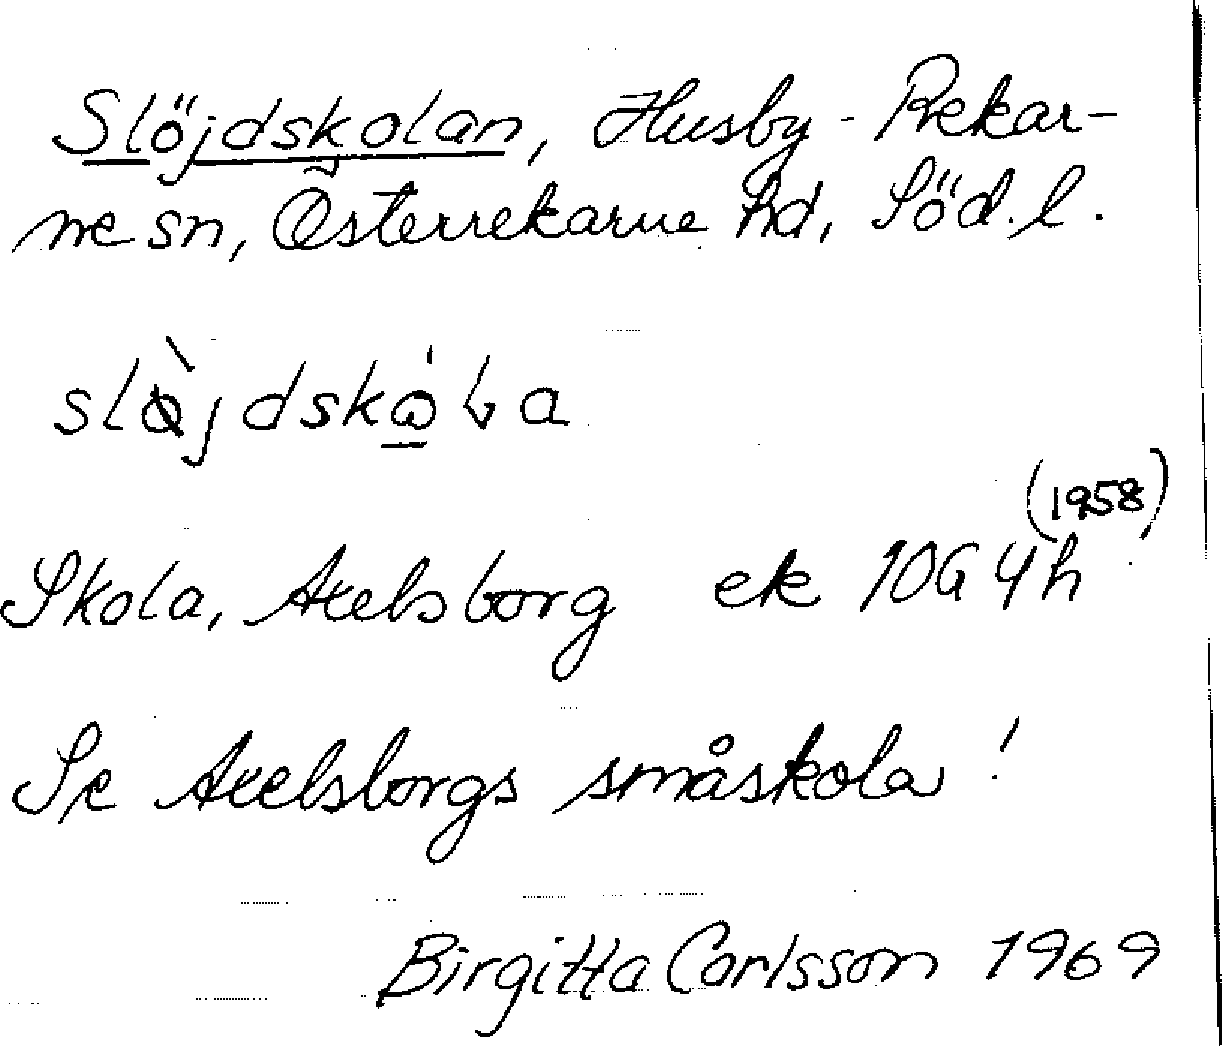 Slöjdskolan, Husby-Rekar-
ne sn, Österrekarne hd, Söd. l.
(1958)
Skola, Axelsborg ek 10G 4h
Se Axelsborgs småskola!
Birgitta Carlsson 1969